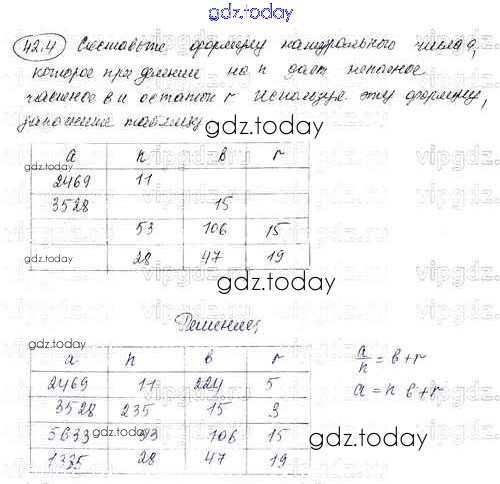 gdz.today
42.4 Составьте формулу натурального числа а,
которое при делении на n дает неполное
частное в и остаток r. Используя эту формулу,
заполните таблицу
gdz.today
а n в r
2469 11
3528 15
53 106 15
gdz.today 28 47 19
gdz.today
Решение:
а n в r
2469 11 224 5
3528 235 15 3
5633 53 106 15
1335 28 47 19
a/n = в + r
a = n в + r
gdz.today
gdz.today